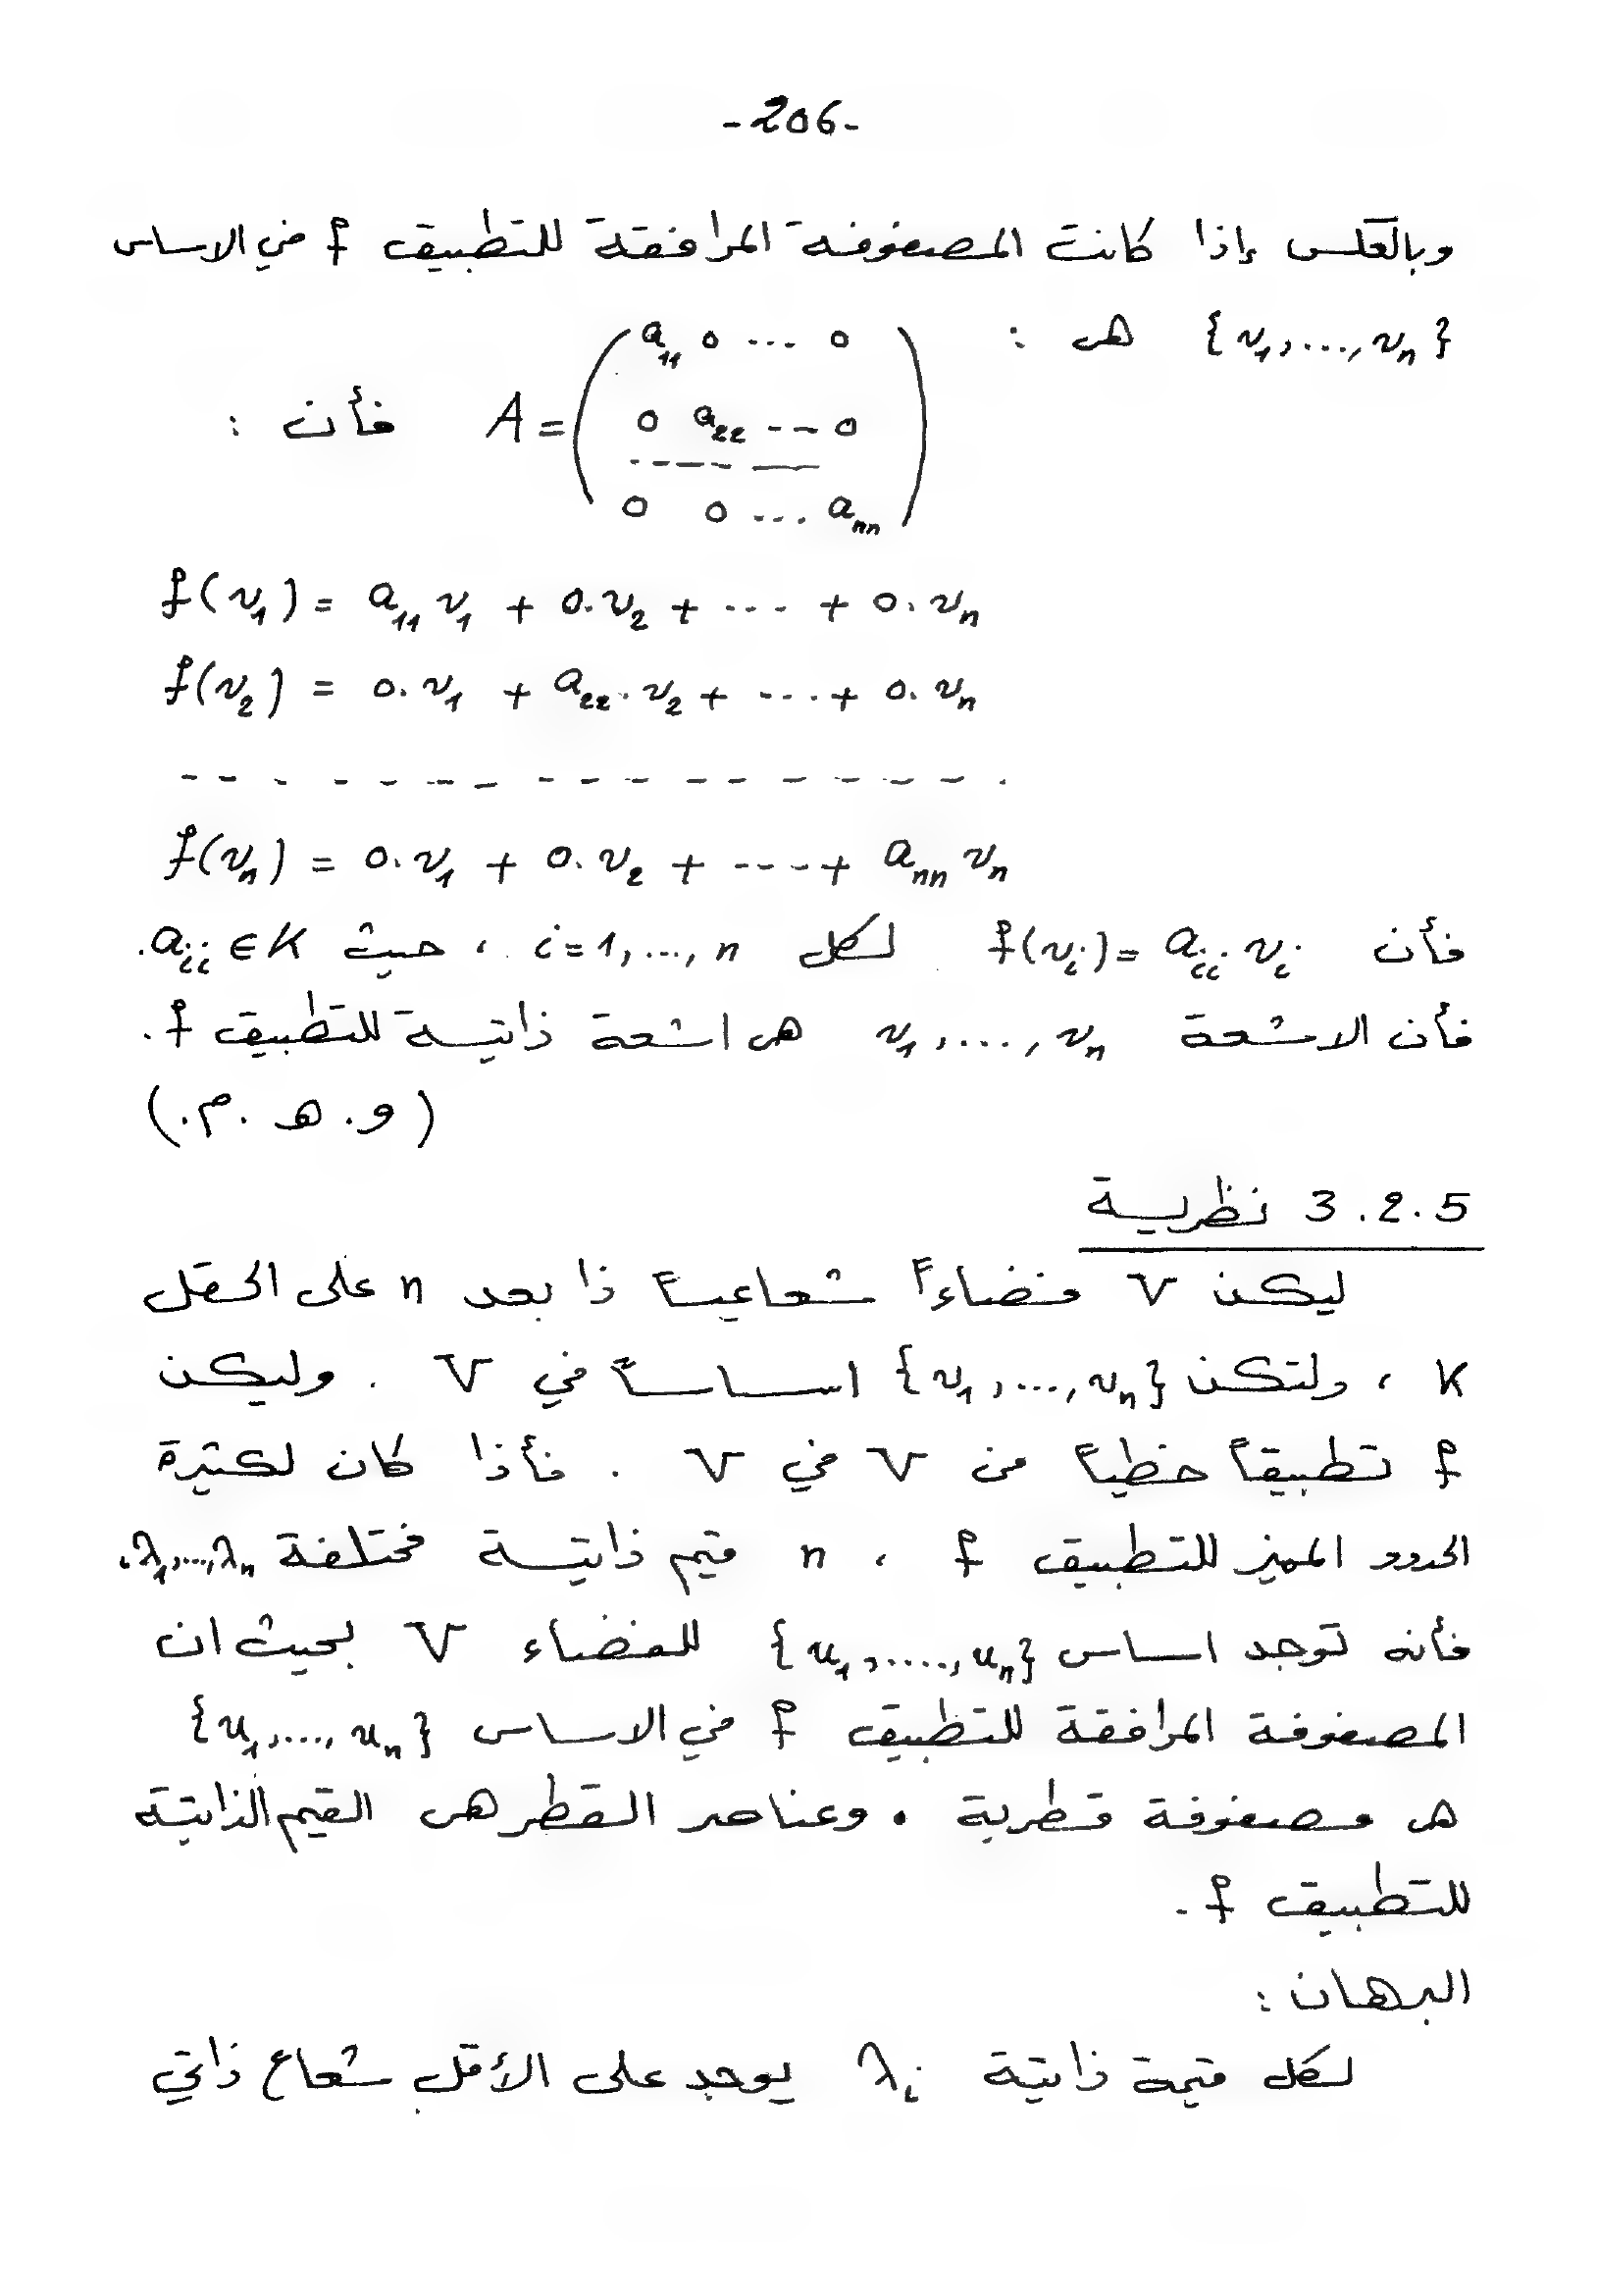 -206-
وبالعكس إذا كانت المصفوفة المرافقة للتطبيق f في الاساس
{v₁,...,vₙ} هي :
A = ( a₁₁ 0 ... 0
0 a₂₂ --- 0
-----------
0 0 ... aₙₙ ) فأن :
f(v₁) = a₁₁ v₁ + 0.v₂ + ---- + 0.vₙ
f(v₂) = 0.v₁ + a₂₂.v₂ + ---.+ 0.vₙ
- - - - - - - - - - - - - - - - -
f(vₙ) = 0.v₁ + 0.v₂ + ----+ aₙₙ vₙ
فأن f(vᵢ) = aᵢᵢ vᵢ لكل i=1,...,n ، حيث aᵢᵢ ∈ K.
فأن الاشعة v₁,....,vₙ هي اشعة ذاتية للتطبيق f.
(و. هـ. م.)
3.2.5 نظرية
ليكن V فضاءاً شعاعياً ذا بعد n على الحقل
K ، ولتكن {v₁,...,vₙ} اساساً في V . وليكن
f تطبيقاً خطياً من V في V . فأذا كان لكثيرة
الحدود المميز للتطبيق f ، n قيم ذاتية مختلفة λ₁,...,λₙ،
فأنه توجد اساس {u₁,....,uₙ} للفضاء V بحيث ان
المصفوفة المرافقة للتطبيق f في الاساس {u₁,...,uₙ}
هي مصفوفة قطرية . وعناصر القطر هي القيم الذاتية
للتطبيق f .
البرهان :
لكل قيمة ذاتية λᵢ يوجد على الأقل شعاع ذاتي